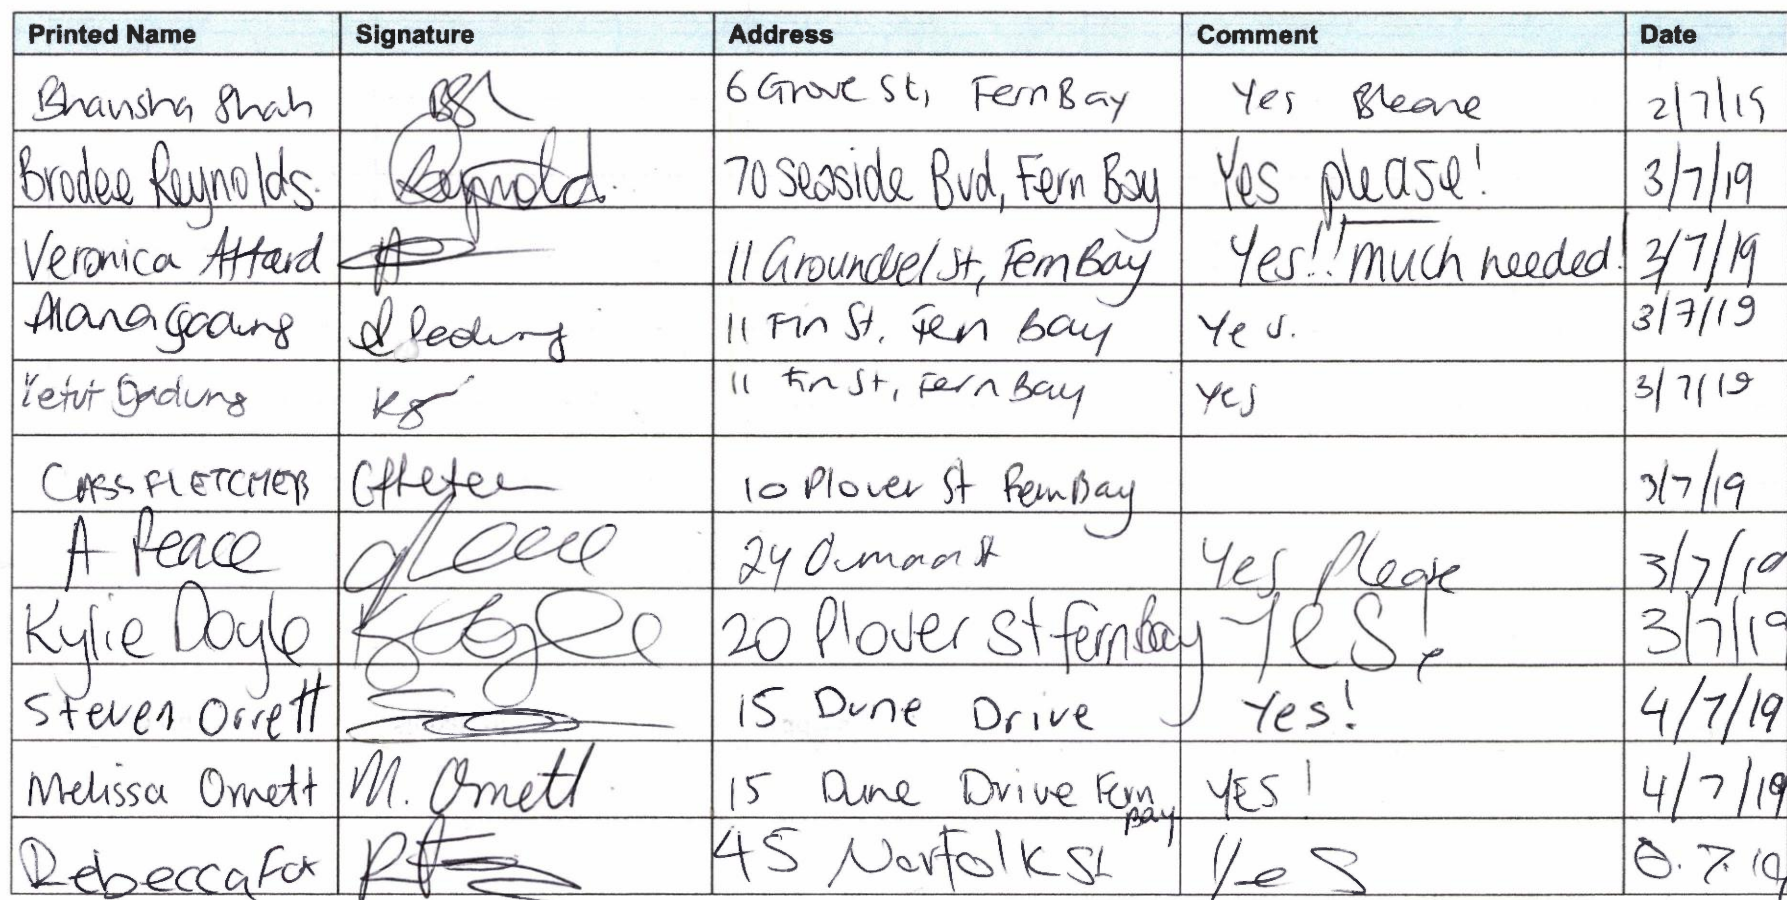 Printed Name Signature Address Comment Date
Bhavisha Shah 6 Grove St, Fern Bay Yes 2/7/19
Brodee Reynolds. Reynolds. 70 Seaside Bvd, Fern Bay Yes please! 3/7/19
Veronica Attard 11 Groundsel St, Fern Bay Yes!! much needed! 3/7/19
Alana Gadung A Gadung 11 Fin St, Fern Bay Yes. 3/7/19
Ketut Gadung KG 11 Fin St, Fern Bay Yes 3/7/19
CASS FLETCHER 10 Plover St Fern Bay 3/7/19
A Peace A Peace 24 Yes Please 3/7/19
Kylie Doyle K Doyle 20 Plover St Fern Bay YES! 3/7/19
Steven Orrett 15 Dune Drive Yes! 4/7/19
Melissa Orrett M. Orrett 15 Dune Drive Fern Bay YES! 4/7/19
Rebecca Fox 45 Norfolk St Yes 7.19